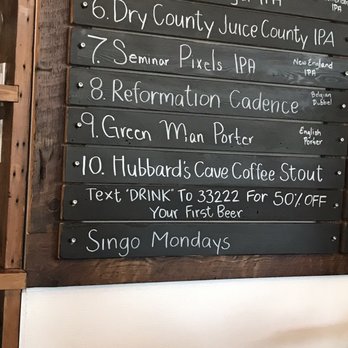 6. Dry County Juice County IPA
IPA
7. Seminar Pixels IPA
New England
IPA
8. Reformation Cadence
Belgian
Dubbel
9. Green Man Porter
English
Porter
10. Hubbard's Cave Coffee Stout
Text "DRINK" To 33222 For 50% OFF
Your First Beer
Singo Mondays